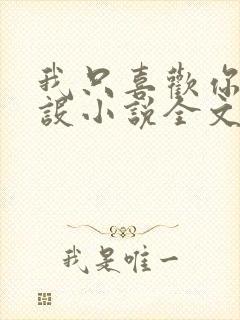 我只喜歡你
設小說全文
我是唯一